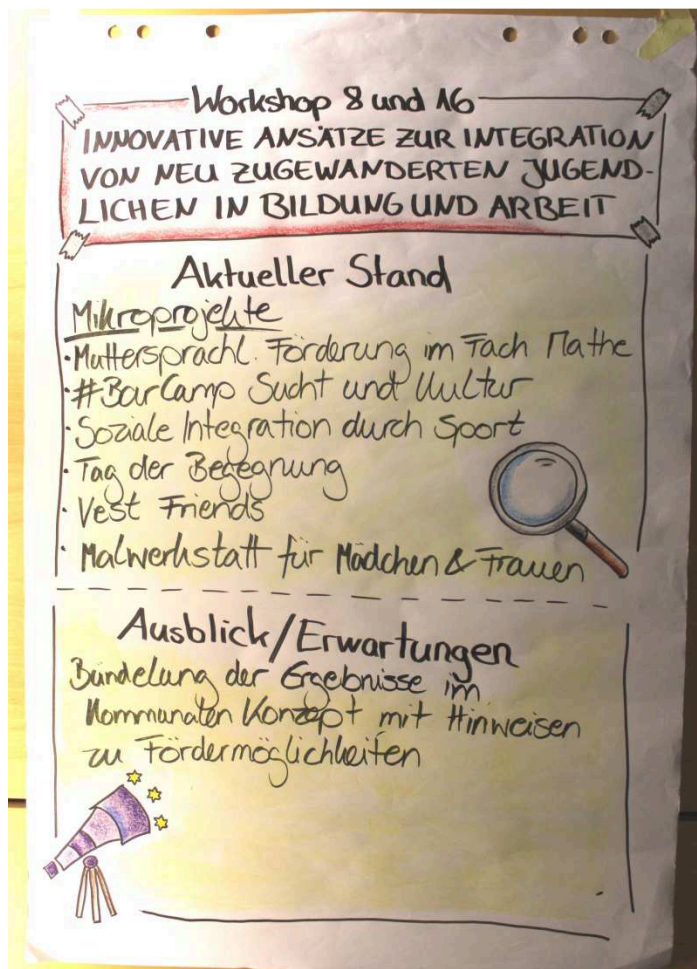 Workshop 8 und 16
INNOVATIVE ANSÄTZE ZUR INTEGRATION
VON NEU ZUGEWANDERTEN JUGEND-
LICHEN IN BILDUNG UND ARBEIT
Aktueller Stand
Mikroprojekte
· Muttersprachl. Förderung im Fach Mathe
· #BarCamp Sucht und Kultur
· Soziale Integration durch Sport
· Tag der Begegnung
· Vest Friends
· Malwerkstatt für Mädchen & Frauen
Ausblick/Erwartungen
Bündelung der Ergebnisse im
Kommunalen Konzept mit Hinweisen
zu Fördermöglichkeiten